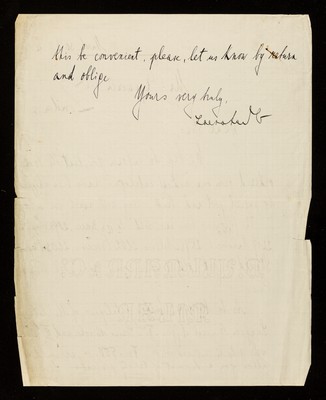 this be convenient, please, let us know by return
and oblige
Yours very truly,